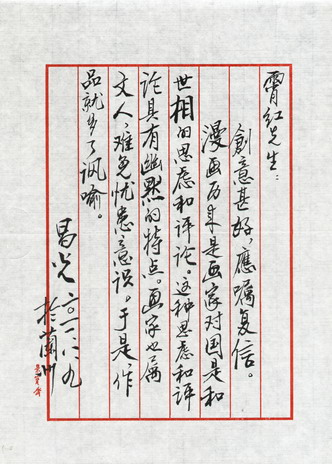 霄红先生：
創意甚好，應嘱复信。
漫画历来是画家对国是和
世相的思虑和评论。这种思虑和评
论具有幽默的特点。画家也属
文人，难免忧患意识。于是，作
品就多了讽喻。
昌 二〇一一·六·九
於蘭州